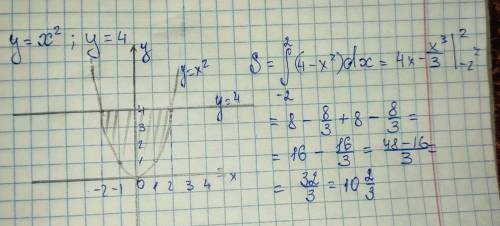 y = x² ; y = 4
y
y=x²
y=4
4
3
2
1
-2 -1 0 1 2 3 4 x
S = ∫₋₂² (4-x²)dx = 4x - x³/3 |₋₂² =
= 8 - 8/3 + 8 - 8/3 =
= 16 - 16/3 = (48-16)/3 =
= 32/3 = 10 2/3